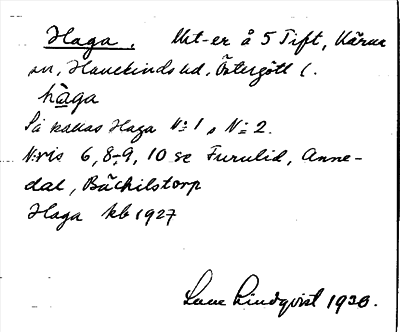 Haga. Utt-er å 5 Tift, Kärna
sn, Hanekinds hd, Östergötl l.
håga
Så kallas Haga N:1 o N:2.
N:ris 6, 8-9, 10 se Furulid, Anne-
dal, Bäckilstorp
Haga kb 1927
Lindqvist 1930.